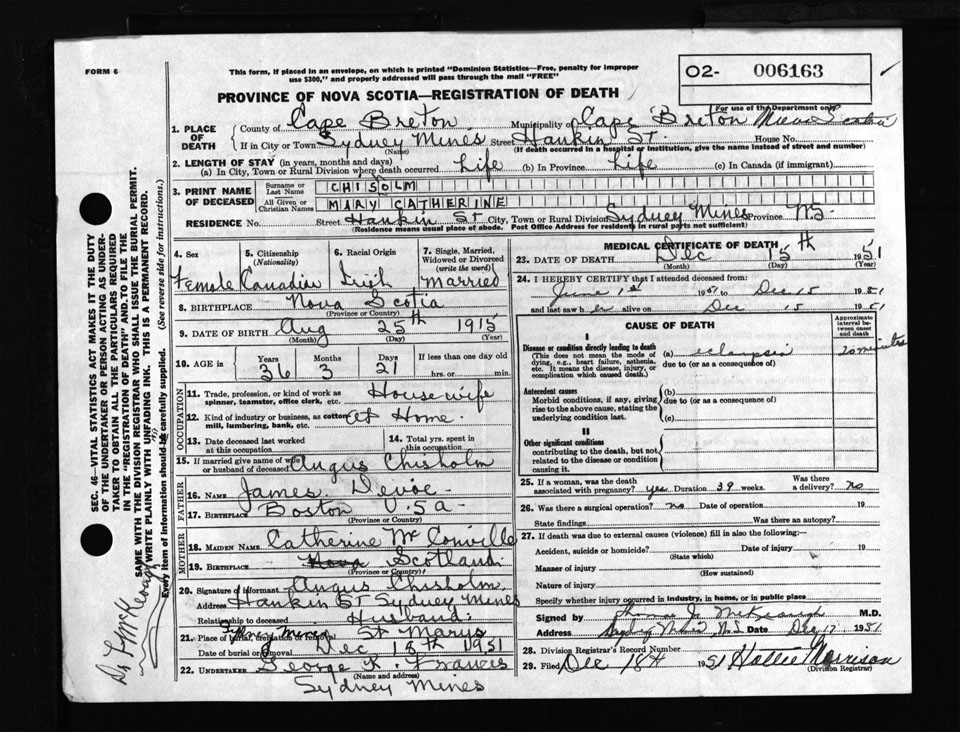 FORM 6
This form, if placed in an envelope, on which is printed "Dominion Statistics—Free, penalty for improper
use $300," and properly addressed will pass through the mail "FREE"
PROVINCE OF NOVA SCOTIA—REGISTRATION OF DEATH
O2- 006163
For use of the Department only
1. PLACE OF DEATH
County of Cape Breton Municipality of Cape Breton Nova Scotia
If in City or Town Sydney Mines Street Hankin St. House No.
(Name) (If death occurred in a hospital or institution, give the name instead of street and number)
2. LENGTH OF STAY (in years, months and days)
(a) In City, Town or Rural Division where death occurred Life (b) In Province Life (c) In Canada (if immigrant)
3. PRINT NAME OF DECEASED
Surname or Last Name CHISOLM
All Given or Christian Names MARY CATHERINE
RESIDENCE No. Street Hankin St City, Town or Rural Division Sydney Mines Province NS
(Residence means usual place of abode. Post Office Address for residents in rural parts not sufficient)
4. Sex Female
5. Citizenship (Nationality) Canadian
6. Racial Origin Irish
7. Single, Married, Widowed or Divorced (write the word) Married
8. BIRTHPLACE Nova Scotia
(Province or Country)
9. DATE OF BIRTH Aug 25th 1915
(Month) (Day) (Year)
10. AGE in Years Months Days If less than one day old
36 3 21 hrs. or min.
OCCUPATION
11. Trade, profession, or kind of work as spinner, teamster, office clerk, etc. Housewife
12. Kind of industry or business, as cotton mill, lumbering, bank, etc. At Home.
13. Date deceased last worked at this occupation
14. Total yrs. spent in this occupation
15. If married give name of wife or husband of deceased Angus Chisholm
FATHER
16. Name James Devoe
17. Birthplace Boston USA-
(Province or Country)
MOTHER
18. Maiden Name Catherine McConville
19. Birthplace Nova Scotland
(Province or Country)
20. Signature of informant Angus Chisholm
Address Hankin St Sydney Mines
Relationship to deceased Husband
21. Place of burial, cremation or removal St Marys
Date of burial or removal Dec 18th 1951
22. UNDERTAKER George K. Francis
(Name and address)
Sydney Mines
MEDICAL CERTIFICATE OF DEATH
23. DATE OF DEATH Dec 15th 1951
(Month) (Day) (Year)
24. I HEREBY CERTIFY that I attended deceased from:
June 1st 1951 to Dec 15 1951
and last saw her alive on Dec 15 1951
CAUSE OF DEATH
Approximate interval between onset and death
I
Disease or condition directly leading to death
(This does not mean the mode of dying, e.g., heart failure, asthenia, etc. It means the disease, injury, or complication which caused death.)
(a) eclampsia 20 minutes
due to (or as a consequence of)
Antecedent causes
Morbid conditions, if any, giving rise to the above cause, stating the underlying condition last.
(b)
due to (or as a consequence of)
(c)
II
Other significant conditions
contributing to the death, but not related to the disease or condition causing it.
25. If a woman, was the death associated with pregnancy? yes Duration 39 weeks. Was there a delivery? no
26. Was there a surgical operation? no Date of operation 19
State findings Was there an autopsy?
27. If death was due to external causes (violence) fill in also the following:—
Accident, suicide or homicide? Date of injury 19
(State which)
Manner of injury
(How sustained)
Nature of injury
Specify whether injury occurred in industry, in home, or in public place
Signed by Thomas J. McKeough M.D.
Address N.S. Date Dec 17 1951
28. Division Registrar's Record Number
29. Filed Dec 18th 1951 Hattie Morrison
(Division Registrar)
SEC. 46—VITAL STATISTICS ACT MAKES IT THE DUTY
OF THE UNDERTAKER OR PERSON ACTING AS UNDER-
TAKER TO OBTAIN ALL THE PARTICULARS REQUIRED
IN THE "REGISTRATION OF DEATH" AND TO FILE THE
SAME WITH THE DIVISION REGISTRAR WHO SHALL ISSUE THE BURIAL PERMIT.
WRITE PLAINLY WITH UNFADING INK. THIS IS A PERMANENT RECORD.
Every item of information should be carefully supplied. (See reverse side for instructions.)
Dr McKeough